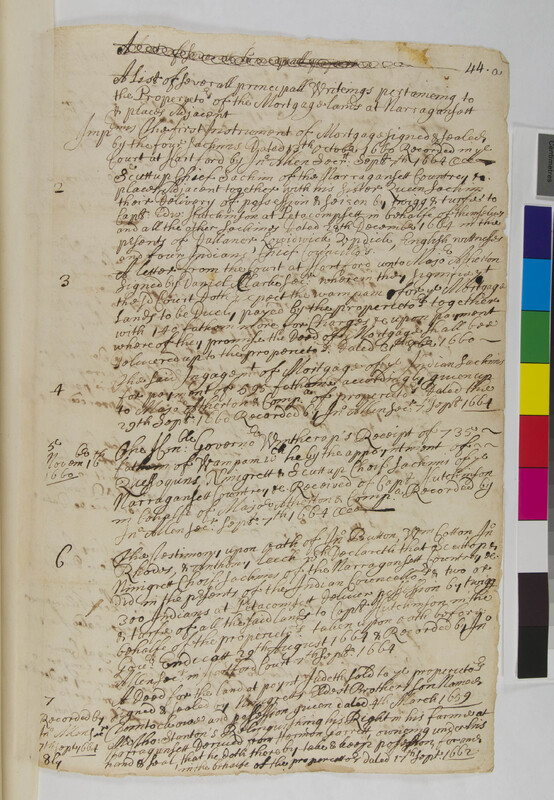 44.a
A List of severall principall Writings pertaineing to
the Propriet^rs of the Mortgage lands at Narragansett
& places adjacent
Imp^rs The first Instrument of Mortgage signed & sealed
by the four Sachims Dated 13th Octob^r 1660 Recorded in y^e
Court at Hartford by Jn^o Allen Secr^y Sept^r 7th 1664
2 Scuttup Chief Sachim of the Narraganset Countrey &
places adjacent together with his Sister Queen Sachims
their delivery of possession & seizen by twigg & turffe to
Cap^t Edw. Hutchinson at Petacomscett in behalfe of themselves
and all the other Sachims Dated 28th December 1664 in the
presents of English witnesses
and four Indians Chief Councellors
3 A Letter from the Court at Hartford unto Majo^r Atherton
signed by Daniel Clarke Sec^r wherein they signifie that
the s^d Court doth expect the wampam for y^e Mortgage
Lands to be Duely payed by the propriet^rs together
with 140 fathom more for charges & upon payment
whereof they promise the Deed of Mortgage shall bee
delivered up to the propriet^rs Dated Sept^r 1660
4 The said engagem^t of Mortgage of y^e Indian Sachims
for payment of 595 fathome accordingly given up
to Majo^r Atherton & Comp^a of propriet^rs Dated this
29th Sept^r 1660 Recorded by Jn^o Allen Sec^r 7 Sept^r 1664
5 The Hon^ble Governo^r Winthrop's Receipt of 735
Novem 16
1660
fathom of Wampam by the appointment of
Quissoquus, Ninigrett & Scuttup Chief Sachims of y^e
Narragansett Countrey &c Received of Cap^t Hutchinson
in behalfe of Majo^r Atherton & Comp^a Recorded by
Jn^o Allen Sec^r Sept^r 7th 1664
6 The Testimony upon oath of Jn^o Wm Cotton Jn^o
Rhodes, & Anthony doth Declareth that Scuttup &
Ninigret Chief Sachims of the Narraganset Countrey &c
did in the presents of the Indian Councellors & two or
300 Indians at Petacomscet deliver possession by twigg
& turfe of all the said lands to Cap^t Hutchinson in the
behalfe of the propriet^rs taken upon oath before
Gov^r Endecott 29th August 1664 & Recorded by Jn^o
Allen Sec^r in Hartford Court 7th Sept^r 1664
7 A Deed for the land at poynt Judeth sold to y^e propriet^rs
Recorded by
Jn^o Allen sec^r
7th Sept 1664
signed & sealed by Ninigrets Eldest Brothers son Named
and possession given dated 4th March 1659
8ly M^r Tho Stanton's Relinquishing his Right in his farme at
Narragansett Derived from Harmon Garrett, owning under his
hand & seal, that he doth thereby take & keepe possession for and
in the behalfe of the propriet^rs dated 17th Sept^r 1662